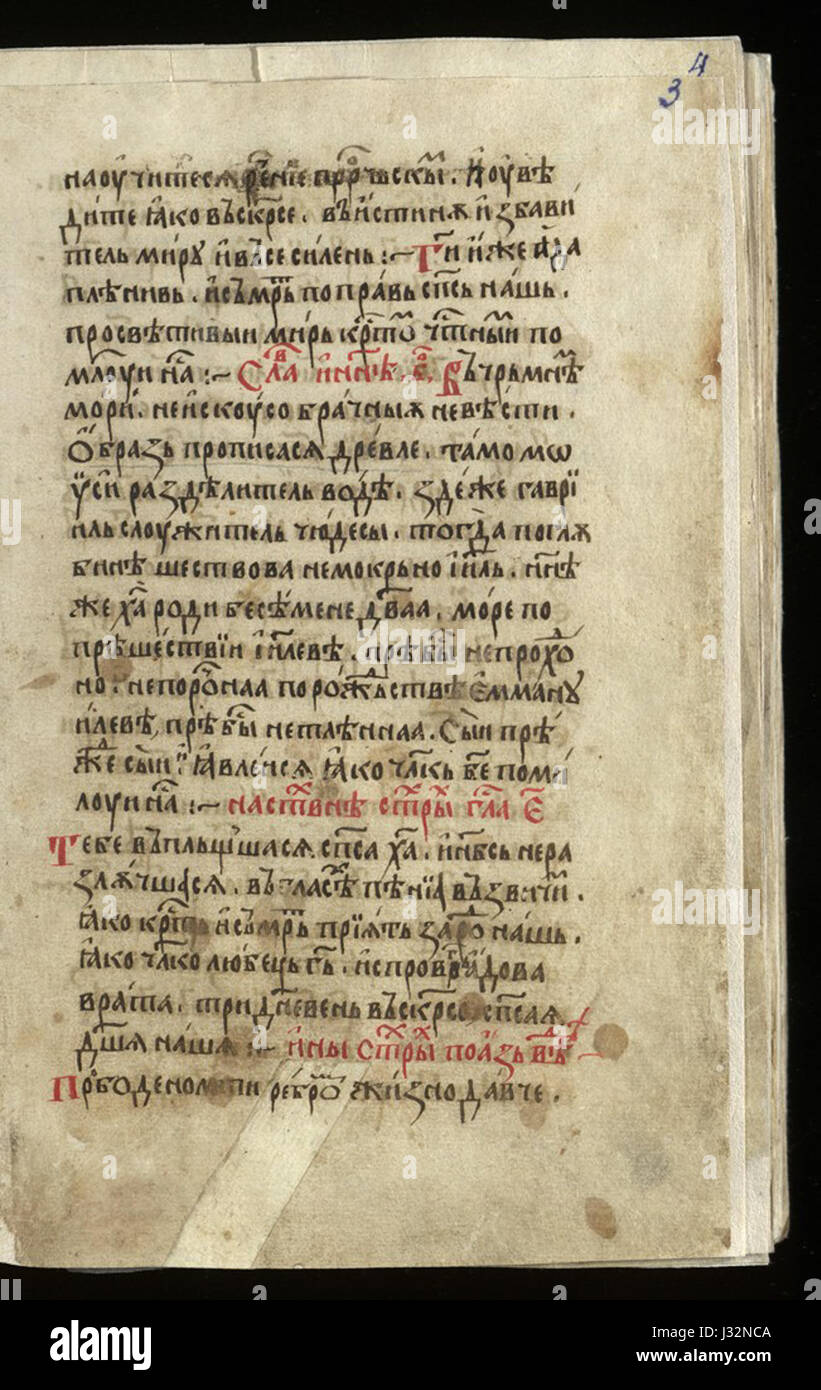 4
3
наоучитеся реніе пррⷪчьскыⷨ. И оувѣ
дите ꙗко въскрⷭ҇се. въистинѫ избави
тель миру и въсесилень :~ Ты иже ада
плѣнивь. и съмрⷮь поправь сп҃сь нашь.
просвѣтивыи мирь крⷭ҇тоⷨ чⷭ҇тныиⷨ по
млⷭ҇уи на҃ :~ Слаⷡ҇ и нн҃ѣ. Въ чрьмнѣⷨ
мори. неискоусобрачныѧ невѣсти.
Образь прописасѧ древле. тамо мѡ
ѵси раздѣлитель водѣ. зде же гаврї
иль слоужитель чюдесы. тогда погл̾ѫ
бинѣ шествова немокрьно іи҃ль. нн҃ѣ
же х҃а роди бесѣмене дв҃аа. море по
прѣшествїи іи҃левѣ. прѣбыⷭ҇ непрохоⷣ
но. непорочнаа по рожⷣьствѣ Емману
илевѣ, прѣбыⷭ҇ нетлѣннаа. Сыи прѣ
жⷣе сыи. ꙗвлеисѧ ꙗко чл҃кь бе҃ поми
лоуи на҃ :~ на стⷯвнѣ стⷯрыⷬ гла Е҃
Тебе въплъщшасѧ сп҃са х҃а. и нб҃сь нера
злѫчшасѧ. въ гласѣⷯ пѣнїа възвⷧ҇ичиⷨ.
ꙗко крⷭ҇ть и съмрⷮь прїѧть за роⷣ нашь.
ꙗко чл҃колюбець г҃ь. испровръ адова
врата. тридневень въскрⷭ҇се, сп҃саѧ
дш҃ѧ нашѧ :~ ины стⷯрыⷬ по аⷥбвѣⷣ
Прободеномⷹ ти ребрⷹ жизнодавче.
alamy
J32NCA
www.alamy.com